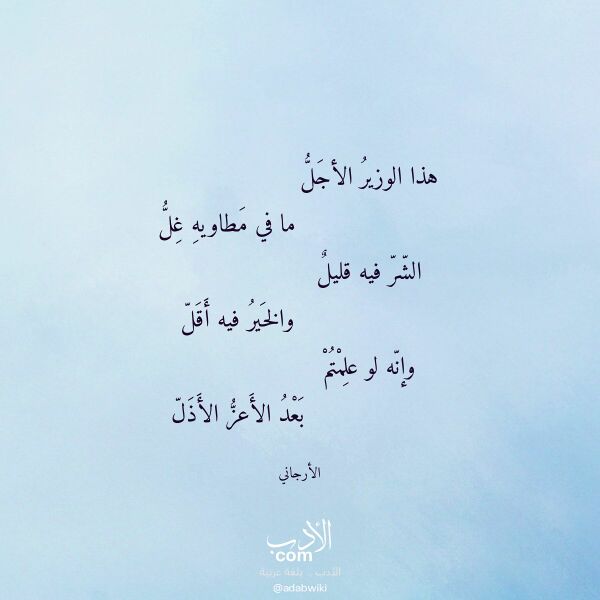 هذا الوزيرُ الأجَلُّ
ما في مَطاويهِ غِلُّ
الشّرّ فيه قليلٌ
والخَيرُ فيه أَقَلّ
وإنّه لو علِمْتُمْ
بَعْدُ الأَعزُّ الأَذَلّ
الأرجاني
الأدب
com
الأدب .. بلغة عربية
@adabwiki